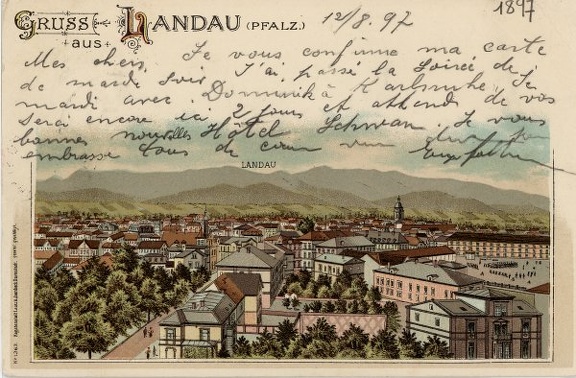 GRUSS aus LANDAU (PFALZ.)
12/8.97
1897
Mes chers, Je vous confirme ma carte
de mardi soir. J'ai passé la Soirée de
mardi avec Dominik à Karlsruhe. Je
serai encore ici 2 jours et attends de vos
bonnes nouvelles Hôtel Schwan. Je vous
embrasse tous de cœur
LANDAU